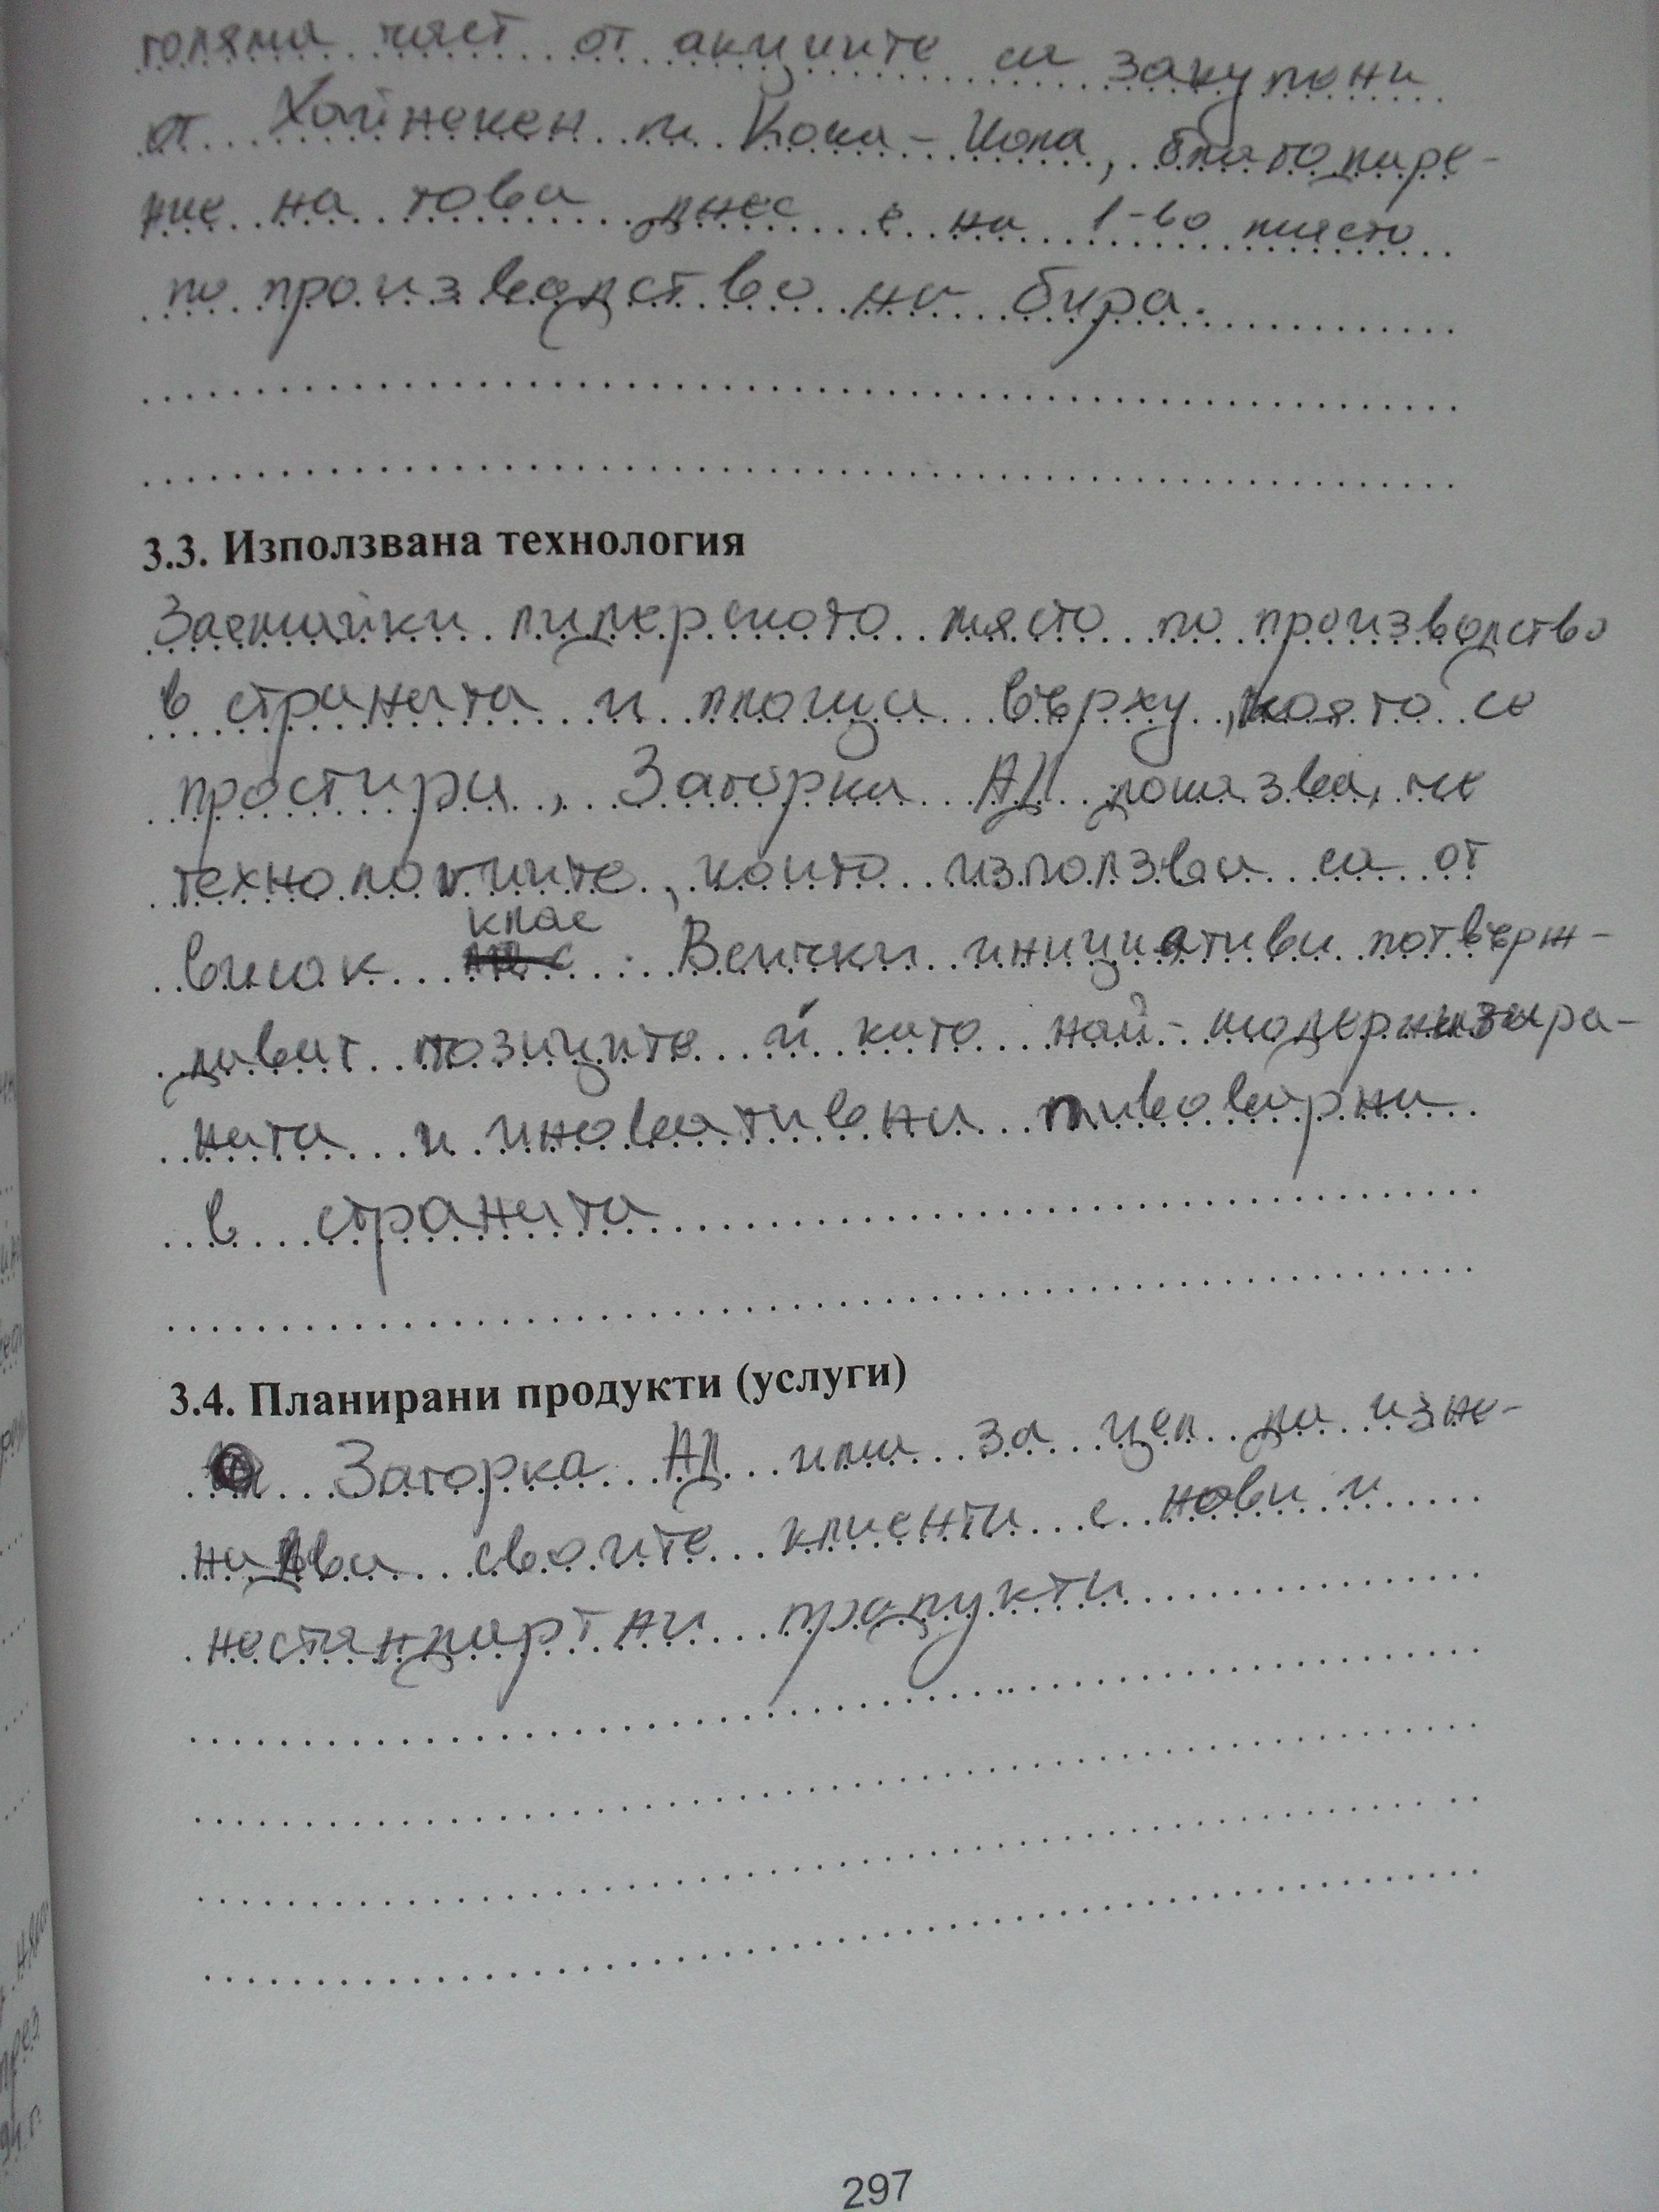 голяма част от акциите са закупени
от Хайнекен и Кока-Кола, благодаре-
ние на това днес е на 1-во място
по производство на бира.
3.3. Използвана технология
Заемайки лидерското място по производство
в страната и площа върху, която се
простира, Загорка АД показва, че
технологиите, които използва са от
висок клас. Всички инициативи потвърж-
дават позициите й като най-модернизира-
ната и иновативна пивоварна
в страната
3.4. Планирани продукти (услуги)
Загорка АД има за цел да изне-
надва своите клиенти с нови и
нестандартни продукти
297